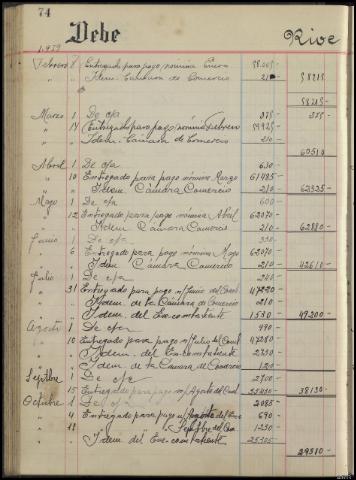 74
1.939
Debe
Rive
Febrero 8 Entregado para pago/nómina Enero 58.005-
" " Idem. Cámara de Comercio 210- 58215-
58215-
Marzo 1 De c/a 375- 375-
" 14 Entregado para pago/nómina Febrero 59925-
" " Idem. Cámara de Comercio 210-
60510
Abril 1 De c/a 630-
" 10 Entregado para pago nómina Marzo 61485-
" " Idem Cámara Comercio 210 62325-
Mayo 1 De c/a 600-
" 12 Entregado para pago nómina Abril 62070-
" " Idem Cámara Comercio 210- 62880-
Junio 1 De c/a
" 6 Entregado para pago nómina Mayo 62070-
" " Idem Cámara Comercio 210- 42610-
Julio 1 De c/a
" 31 Entregado para pago n/Junio del
" " Idem de la Cámara de Comercio 210-
" " Idem del Excombatiente 1530- 49200-
Agosto 1 De c/a 490-
" 10 Entregado para pago n/Julio del 47280
" " Idem. del Excombatiente
" " Idem de la Cámara de Comercio
Sepbre 1 De c/a 2700-
" 15 Entregado para pago n/Agosto del 38130-
Octubre 1 De c/a 2085-
" 4 Entregado para pago n/Agosto del 690-
" 11 " " " Sepbre del 1230-
" " Idem del Excombatiente 25305-
29310-